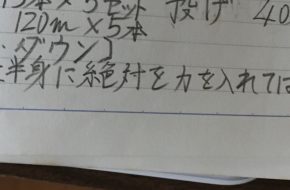 本×5セット 投げ 40
120m×5本
ダウン]
半身に絶対を力を入れては